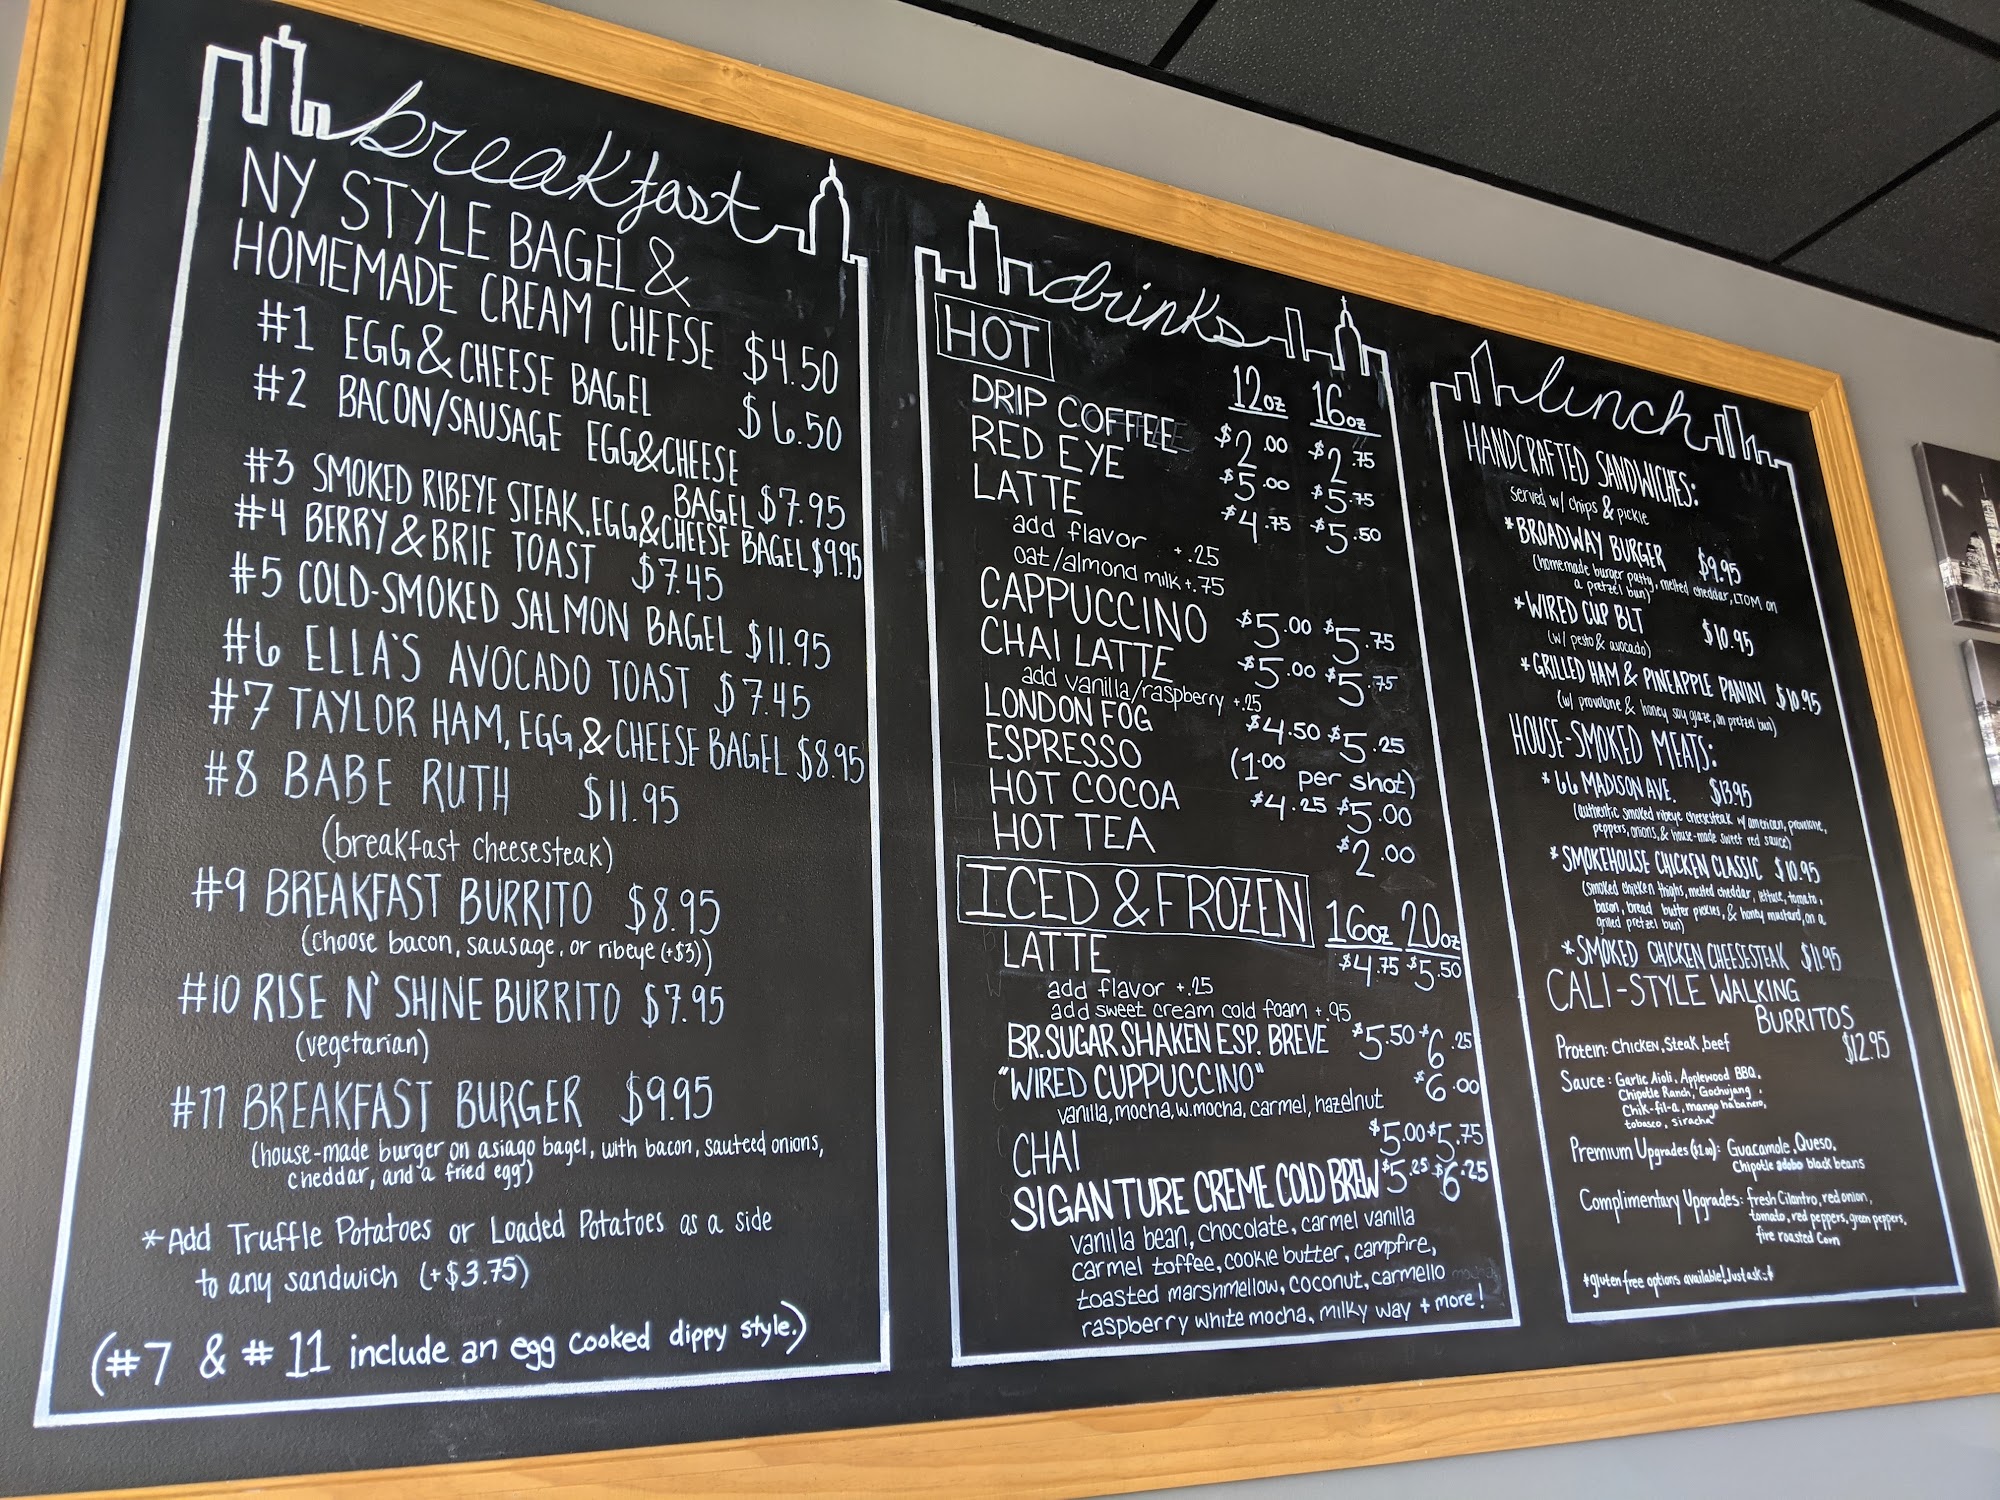 breakfast
NY STYLE BAGEL &
HOMEMADE CREAM CHEESE $4.50
#1 EGG & CHEESE BAGEL $6.50
#2 BACON/SAUSAGE EGG&CHEESE
BAGEL $7.95
#3 SMOKED RIBEYE STEAK, EGG&CHEESE BAGEL $9.95
#4 BERRY & BRIE TOAST $7.45
#5 COLD-SMOKED SALMON BAGEL $11.95
#6 ELLA'S AVOCADO TOAST $7.45
#7 TAYLOR HAM, EGG, & CHEESE BAGEL $8.95
#8 BABE RUTH $11.95
(breakfast cheesesteak)
#9 BREAKFAST BURRITO $8.95
(choose bacon, sausage, or ribeye (+$3))
#10 RISE N' SHINE BURRITO $7.95
(vegetarian)
#11 BREAKFAST BURGER $9.95
(house-made burger on asiago bagel, with bacon, sauteed onions,
cheddar, and a fried egg)
*Add Truffle Potatoes or Loaded Potatoes as a side
to any sandwich (+$3.75)
(#7 & #11 include an egg cooked dippy style.)
drinks
HOT 12oz 16oz
DRIP COFFEE $2.00 $2.75
RED EYE $5.00 $5.75
LATTE $4.75 $5.50
add flavor +.25
oat/almond milk +.75
CAPPUCCINO $5.00 $5.75
CHAI LATTE $5.00 $5.75
add vanilla/raspberry +.25
LONDON FOG $4.50 $5.25
ESPRESSO (1.00 per shot)
HOT COCOA $4.25 $5.00
HOT TEA $2.00
ICED & FROZEN 16oz 20oz
LATTE $4.75 $5.50
add flavor +.25
add sweet cream cold foam +.95
BR.SUGAR SHAKEN ESP. BREVE $5.50 $6.25
"WIRED CUPPUCCINO" $6.00
vanilla, mocha, w.mocha, carmel, hazelnut
CHAI $5.00 $5.75
SIGANTURE CREME COLD BREW $5.25 $6.25
vanilla bean, chocolate, carmel vanilla
carmel toffee, cookie butter, campfire,
toasted marshmellow, coconut, carmello
raspberry white mocha, milky way + more!
lunch
HANDCRAFTED SANDWICHES:
served w/ chips & pickle
*BROADWAY BURGER $9.95
(homemade burger patty, melted cheddar, LTOM on
a pretzel bun)
*WIRED CUP BLT $10.95
(w/ pesto & avocado)
*GRILLED HAM & PINEAPPLE PANINI $10.95
(w/ provolone & honey soy glaze, on pretzel bun)
HOUSE-SMOKED MEATS:
*66 MADISON AVE. $13.95
(authentic smoked ribeye cheesesteak w/ american, provolone,
peppers, onions, & house-made sweet red sauce)
*SMOKEHOUSE CHICKEN CLASSIC $10.95
(smoked chicken thighs, melted cheddar, lettuse, tomato,
bacon, bread butter pickles, & honey mustard, on a
grilled pretzel bun)
*SMOKED CHICKEN CHEESESTEAK $11.95
CALI-STYLE WALKING
BURRITOS
$12.95
Protein: chicken, steak, beef
Sauce: Garlic Aioli, Applewood BBQ,
Chipotle Ranch, Gochujang
Chik-fil-a, mango habanero,
tobasco, siracha
Premium Upgrades ($1.00): Guacamole, Queso,
Chipotle adobo black beans
Complimentary Upgrades: fresh Cilantro, red onion,
tomato, red peppers, green peppers,
fire roasted corn
*gluten free options available! Just ask :)*